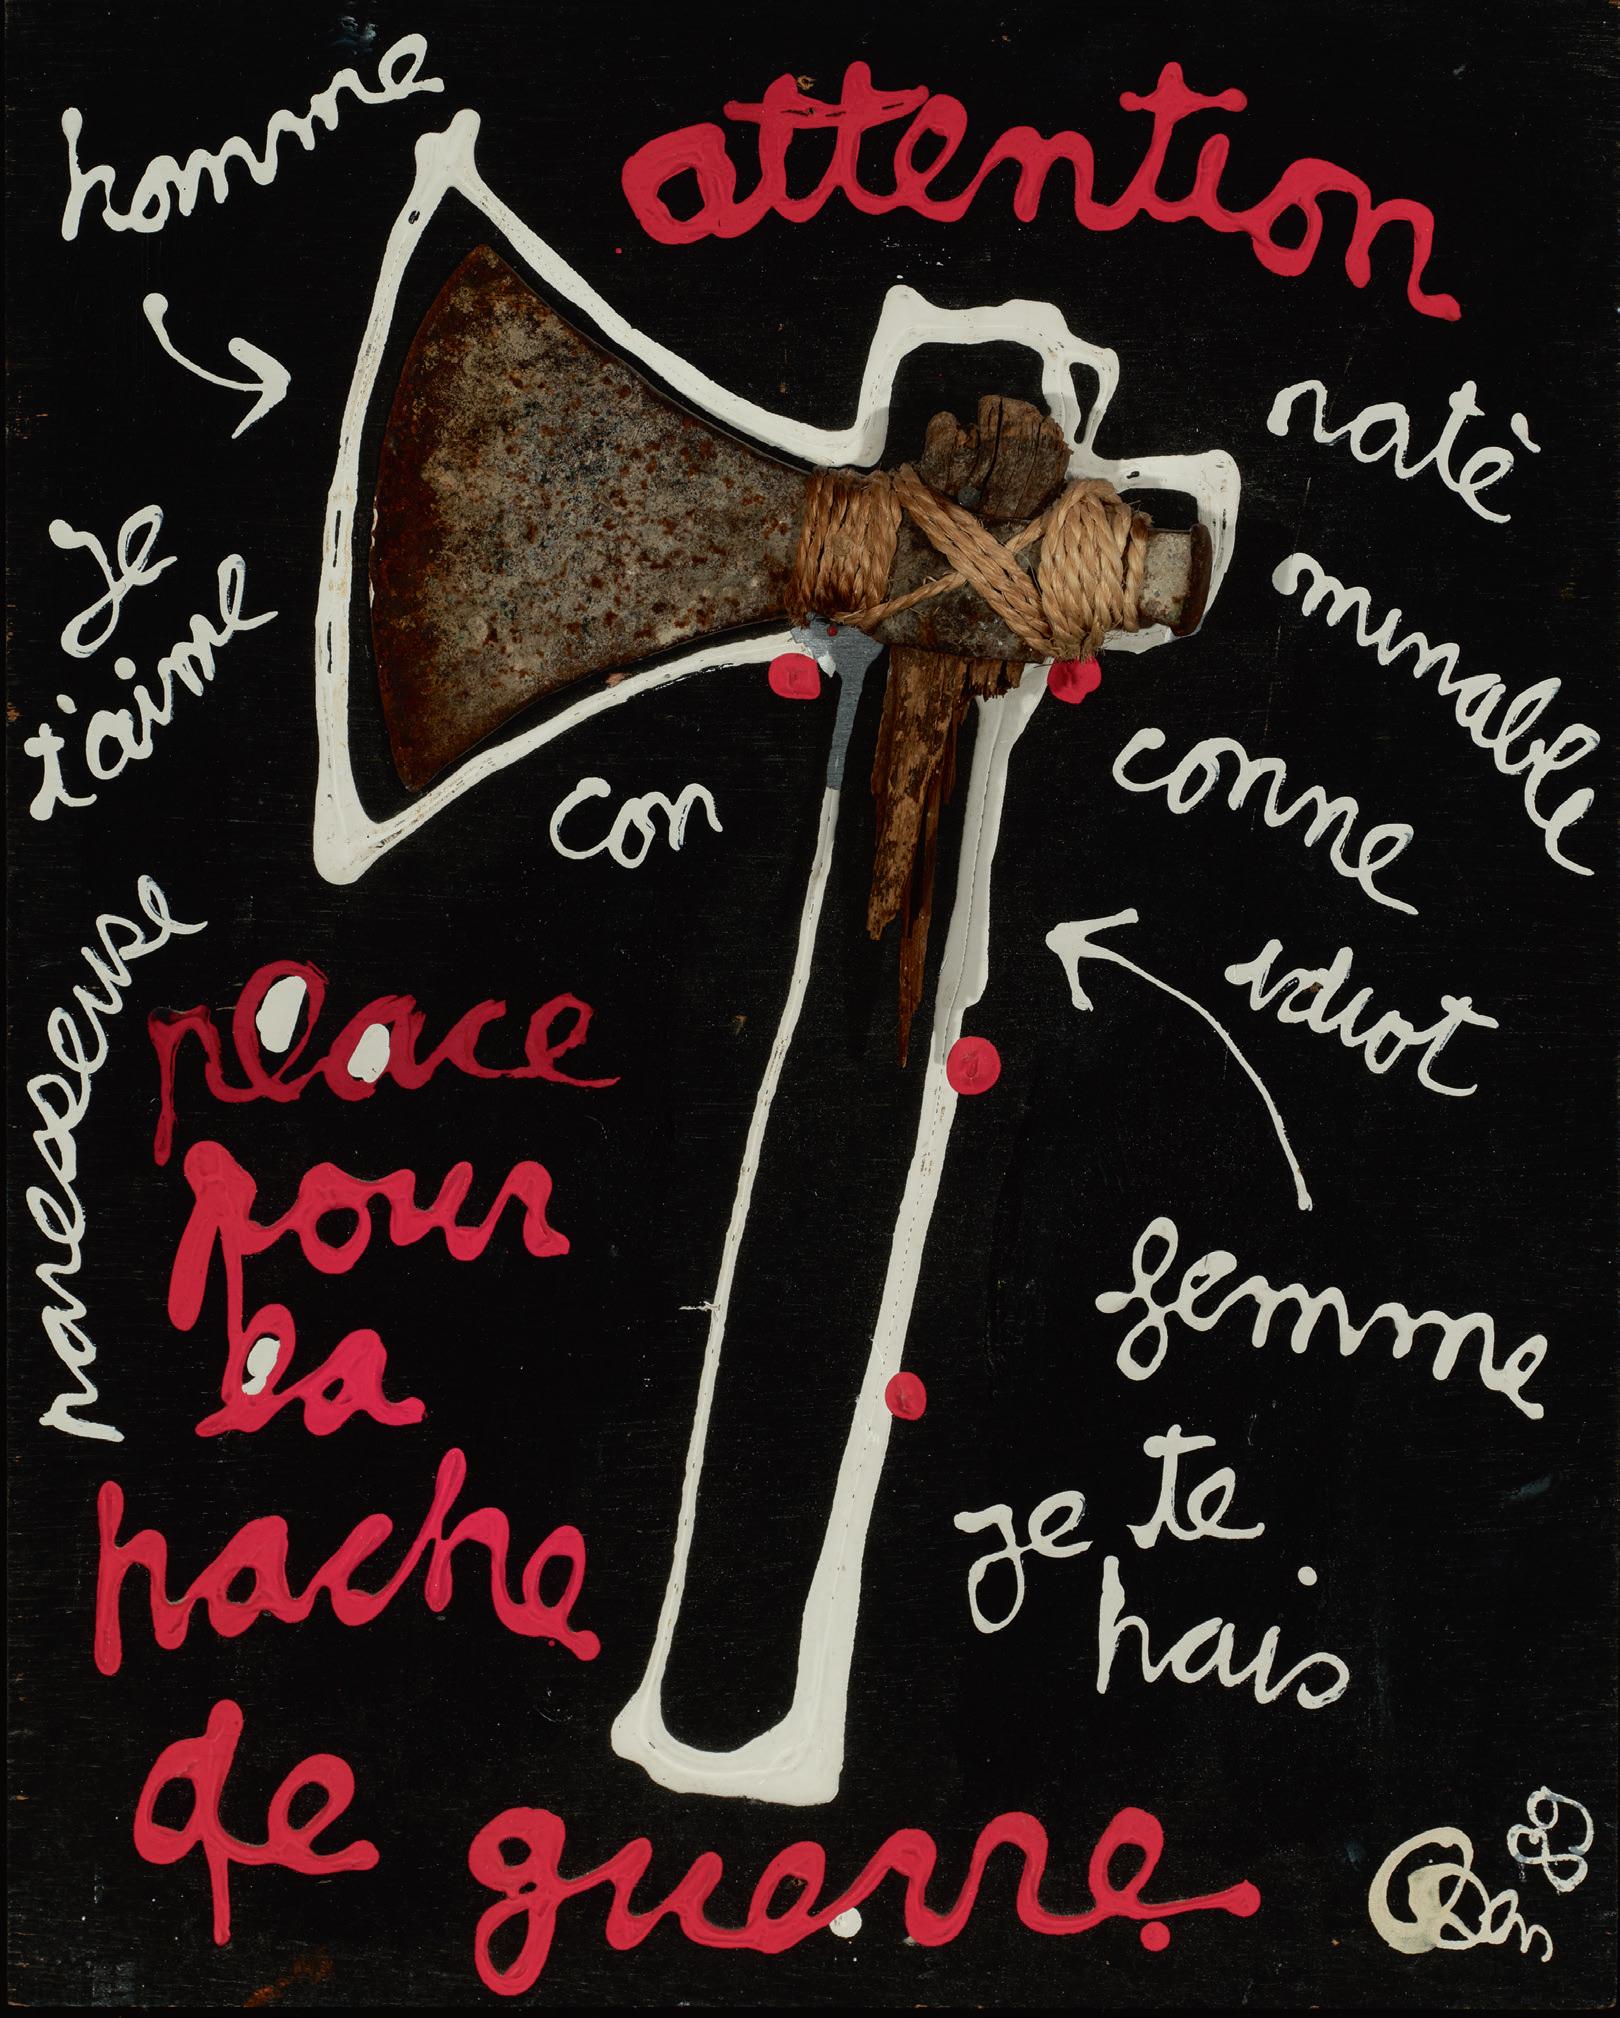 homme
attention
raté
minable
Je
t'aime
con
conne
idiot
paresseuse
place
pour
la
hache
de guerre
femme
je te
hais
Ben 89